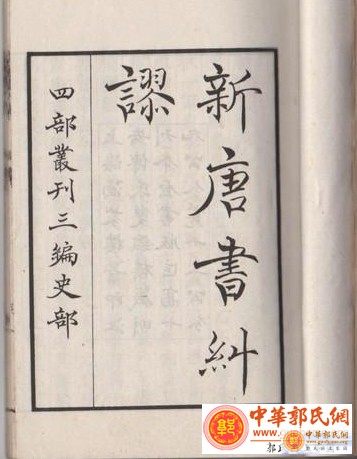 新唐書糾
謬
四部叢刊三編史部
中華郭氏網